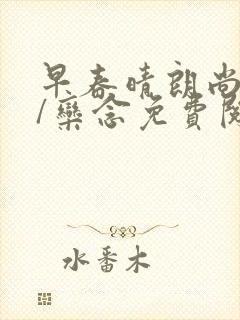 早春晴朗尚
/欒念免費閱
水番木